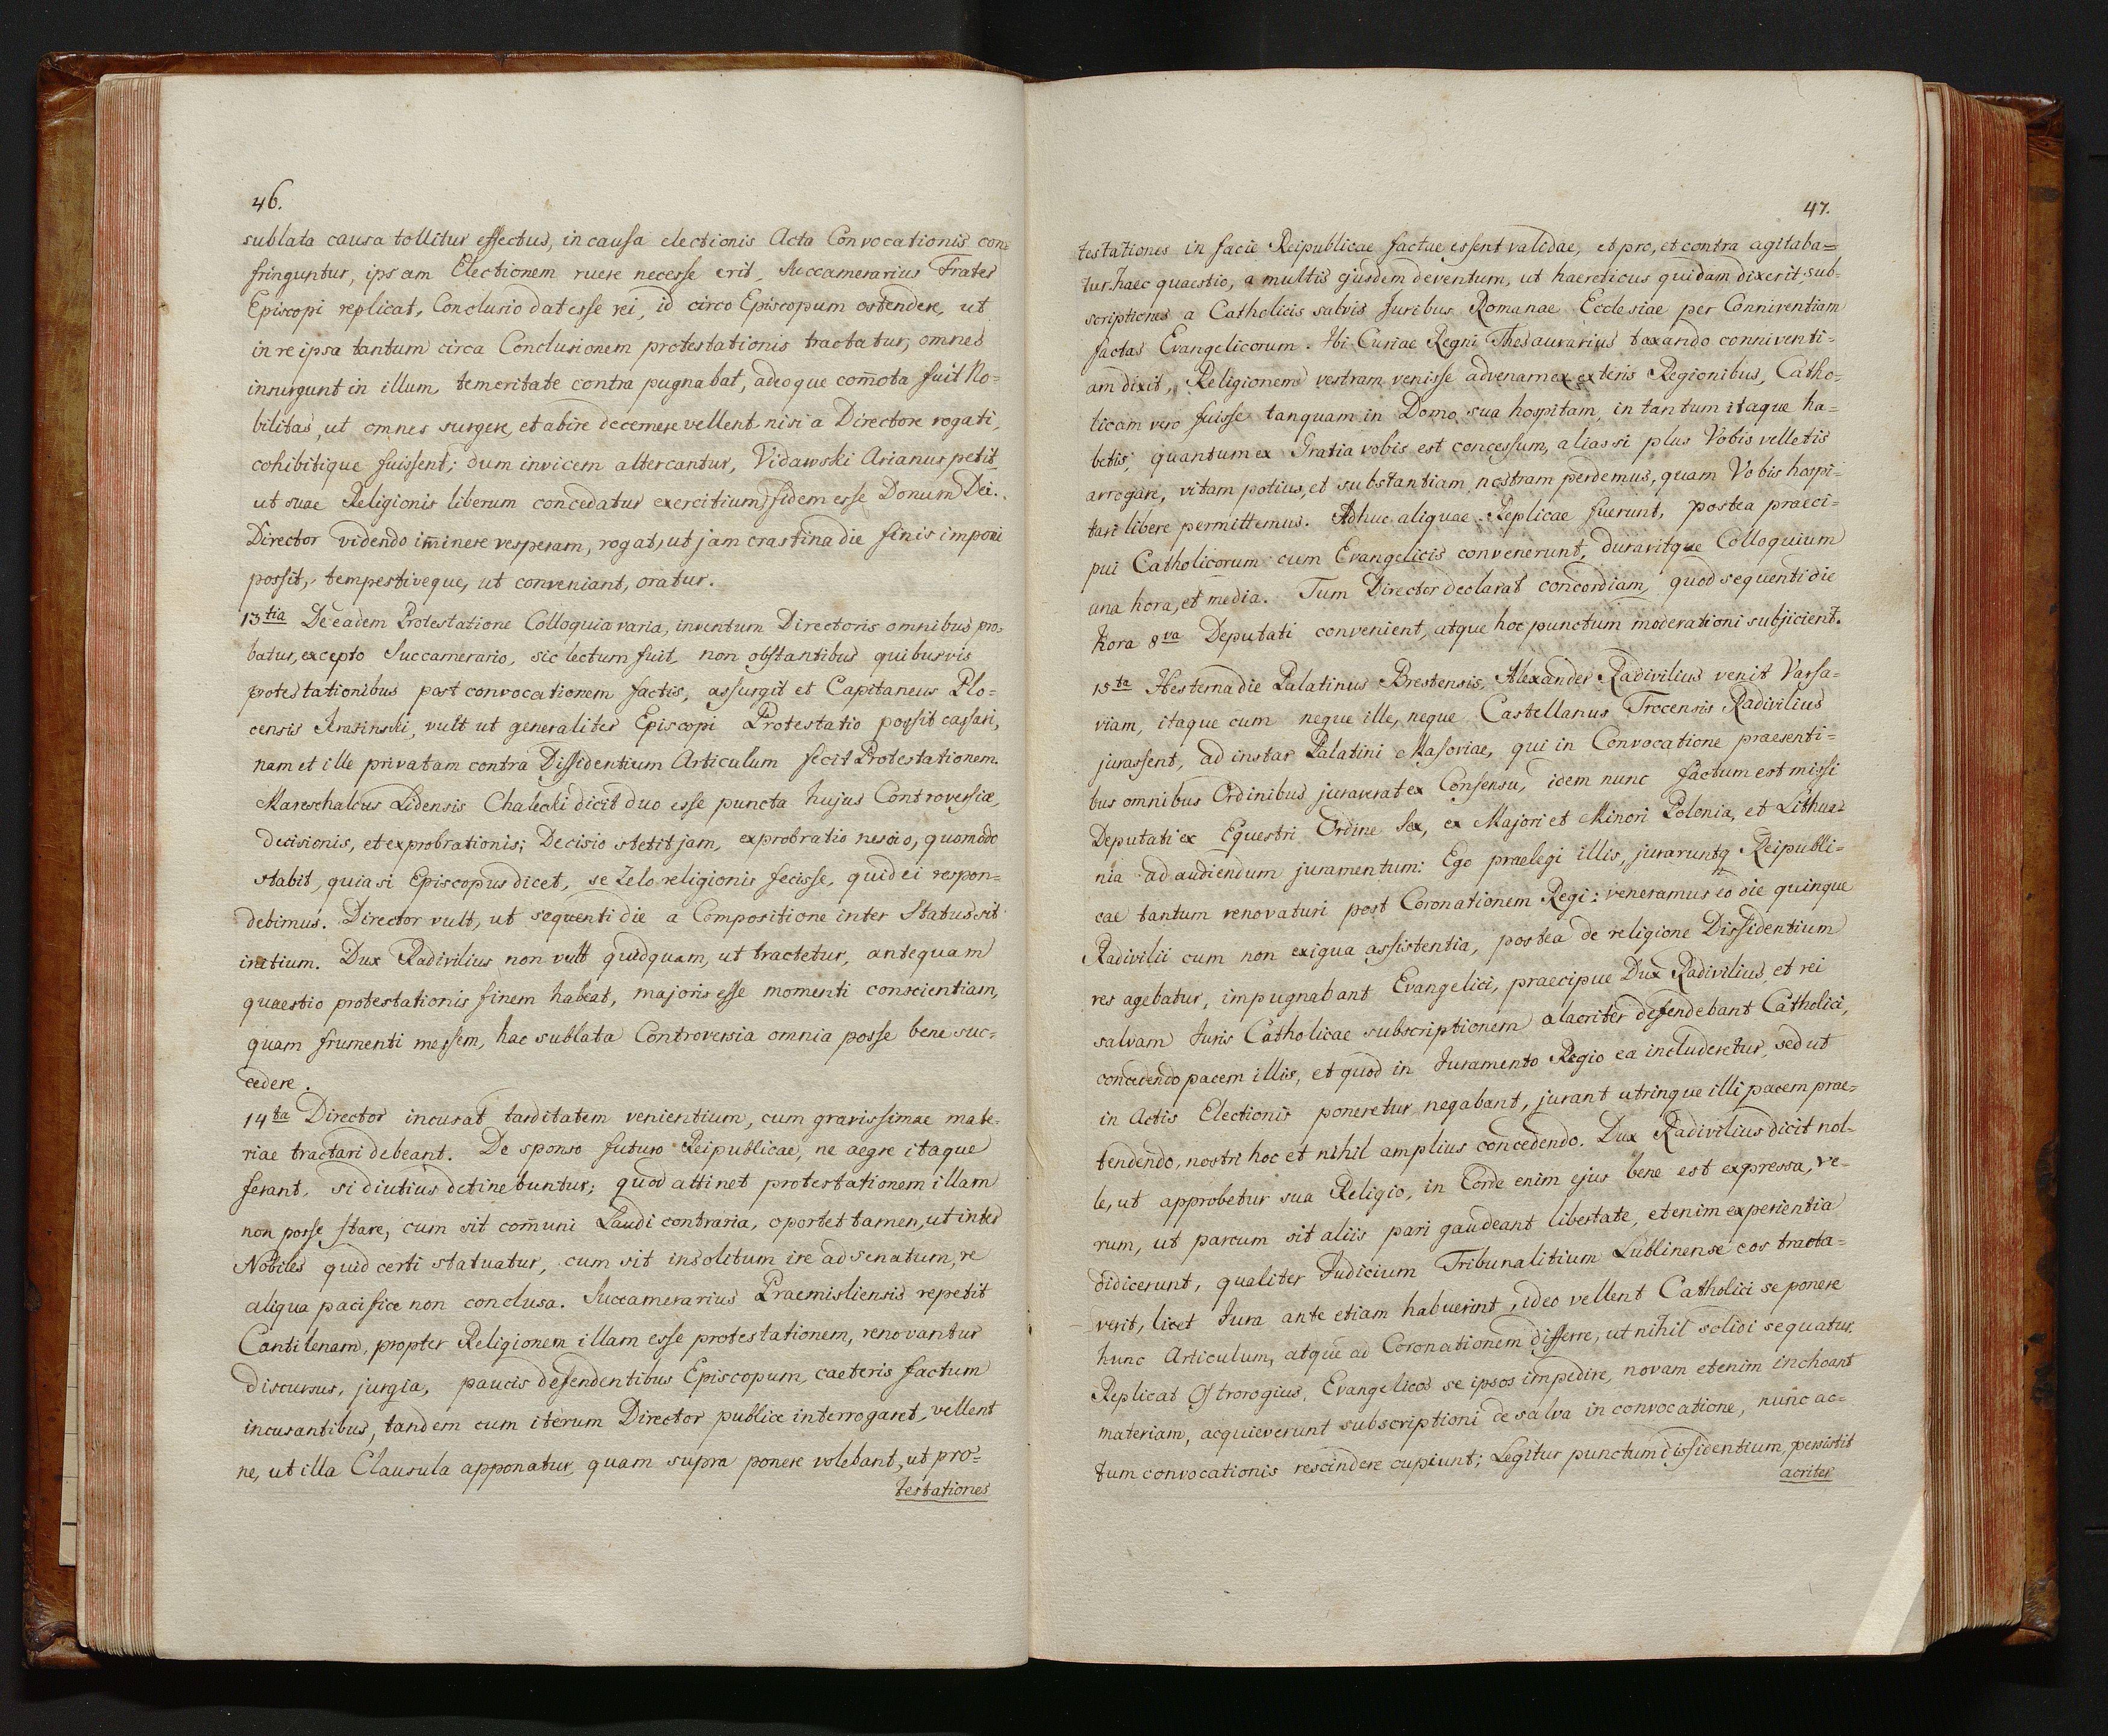 46.
sublata causa tollitur effectus, in causa electionis Acta Convocationis con=
fringuntur, ipsam Electionem ruere necesse erit, Succamerarius Frater
Episcopi replicat, Conclusio dat esse rei, id circo Episcopum ostendere, ut
in re ipsa tantum circa Conclusionem protestationis tractatur, omnes
insurgunt in illum, temeritate contra pugnabat, adeoque com̄ota fuit No=
bilitas, ut omnes surgere, et abire decernere vellent nisi a Directore rogati,
cohibitique fuissent; dum invicem altercantur, Vidawski Arianus petit
ut suae Religionis liberum concedatur exercitium, fidem esse Donum Dei.
Director videndo im̄inere vesperam, rogat, ut jam crastina die finis imponi
possit, tempestiveque, ut conveniant, oratur.
13tia De eadem Protestatione Colloquia varia, inventum Directoris omnibus pro=
batur, excepto Succamerario, sic lectum fuit, non obstantibus quibusvis
protestationibus post convocationem factis, assurgit et Capitaneus Plo=
censis Krasinski, vult ut generaliter Episcopi Protestatio possit cassari,
nam et ille privatam contra Dissidentium Articulum fecit Protestationem.
Mareschalcus Lidensis Chalecki dicit duo esse puncta hujus Controversiae,
decisionis, et exprobrationis; Decisio stetit jam, exprobratio nescio, quomodo
stabit, quia si Episcopus dicet, se Zelo religionis fecisse, quid ei respon=
debimus. Director vult, ut sequenti die a Compositione inter Status sit
initium. Dux Radivilius non vult quidquam, ut tractetur, antequam
quaestio protestationis finem habeat, majoris esse momenti conscientiam,
quam frumenti messem, hac sublata Controversia omnia posse bene suc=
cedere.
14ta Director incusat tarditatem venientium, cum gravissimae mate=
riae tractari debeant. De sponso futuro Reipublicae, ne aegre itaque
ferant, si diutius detinebuntur; quod attinet protestationem illam
non posse stare, cum sit com̄uni Laudi contraria, oportet tamen, ut inter
Nobiles quid certi statuatur, cum sit insolitum ire ad senatum, re
aliqua pacifice non conclusa. Succamerarius Praemisliensis repetit
Cantilenam, propter Religionem illam esse protestationem, renovantur
discursus, jurgia, paucis defendentibus Episcopum, caeteris factum
incusantibus, tandem cum iterum Director publice interrogaret, vellent
ne, ut illa Clausula apponatur, quam supra ponere volebant, ut pro=
testationes
47.
testationes in facie Reipublicae factae essent validae, et pro, et contra agitaba=
tur haec quaestio, a multis ejusdem deventum, ut haereticus quidam dixerit, sub=
scriptiones a Catholicis salvis Juribus Romanae Ecclesiae per Conniventiam
factas Evangelicorum. Ibi Curiae Regni Thesaurarius taxando conniventi=
am dixit, Religionem vestram venisse advenam ex exteris Regionibus, Catho=
licam vero fuisse tanquam in Domo sua hospitam, in tantum itaque ha=
betis, quantum ex Gratia vobis est concessum, alias si plus Vobis velletis
arrogare, vitam potius, et substantiam nostram perdemus, quam Vobis hospi=
tari libere permittemus. Adhuc aliquae Replicae fuerunt, postea praeci=
pui Catholicorum cum Evangelicis convenerunt, duravitque Colloquium
una hora, et media. Tum Director declarat concordiam, quod sequenti die
hora 8va Deputati convenient, atque hoc punctum moderationi subjicient.
15ta Hesterna die Palatinus Brestensis, Alexander Radivilius venit Varsa=
viam, itaque cum neque ille, neque Castellanus Trocensis Radivilius
jurassent, ad instar Palatini Masoviae, qui in Convocatione praesenti=
bus omnibus Ordinibus juraverat ex Consensu, idem nunc factum est missi
Deputati ex Equestri Ordine sex, ex Majori et Minori Polonia, et Lithua=
nia ad audiendum juramentum: Ego praelegi illis, juraruntq Reipubli=
cae tantum renovaturi post Coronationem Regi: veneramus eo die quinque
Radivilii cum non exigua assistentia, postea de religione Dissidentium
res agebatur, impugnabant Evangelici, praecipue Dux Radivilius, et rei
salvam Juris Catholicae subscriptionem alacriter defendebant Catholici,
concedendo pacem illis, et quod in Juramento Regio ea includeretur, sed ut
in Actis Electionis poneretur negabant, jurant utrinque illi pacem prae=
tendendo, nostri hoc et nihil amplius concedendo. Dux Radivilius dicit nol=
le, ut approbetur sua Religio, in Corde enim ejus bene est expressa, ve=
rum, ut parcum sit aliis pari gaudeant libertate, etenim experientia
didicerunt, qualiter Judicium Tribunalitium Lublinense eos tracta=
verit, licet Jura ante etiam habuerint, ideo vellent Catholici se ponere
hunc Articulum, atque ad Coronationem differre, ut nihil solidi sequatur.
Replicat Ostrorogius, Evangelicos se ipsos impedire, novam etenim inchoant
materiam, acquieverunt subscriptioni de salva in convocatione, nunc ac=
tum convocationis rescindere cupiunt; Legitur punctum dissidentium, persistit
acriter